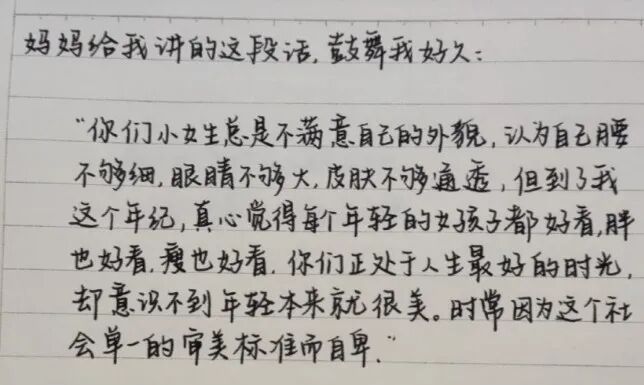 妈妈给我讲的这段话,鼓舞我好久:
“你们小女生总是不满意自己的外貌,认为自己腰
不够细,眼睛不够大,皮肤不够通透,但到了我
这个年纪,真心觉得每个年轻的女孩子都好看,胖
也好看,瘦也好看,你们正处于人生最好的时光,
却意识不到年轻本来就很美。时常因为这个社
会单一的审美标准而自卑.”